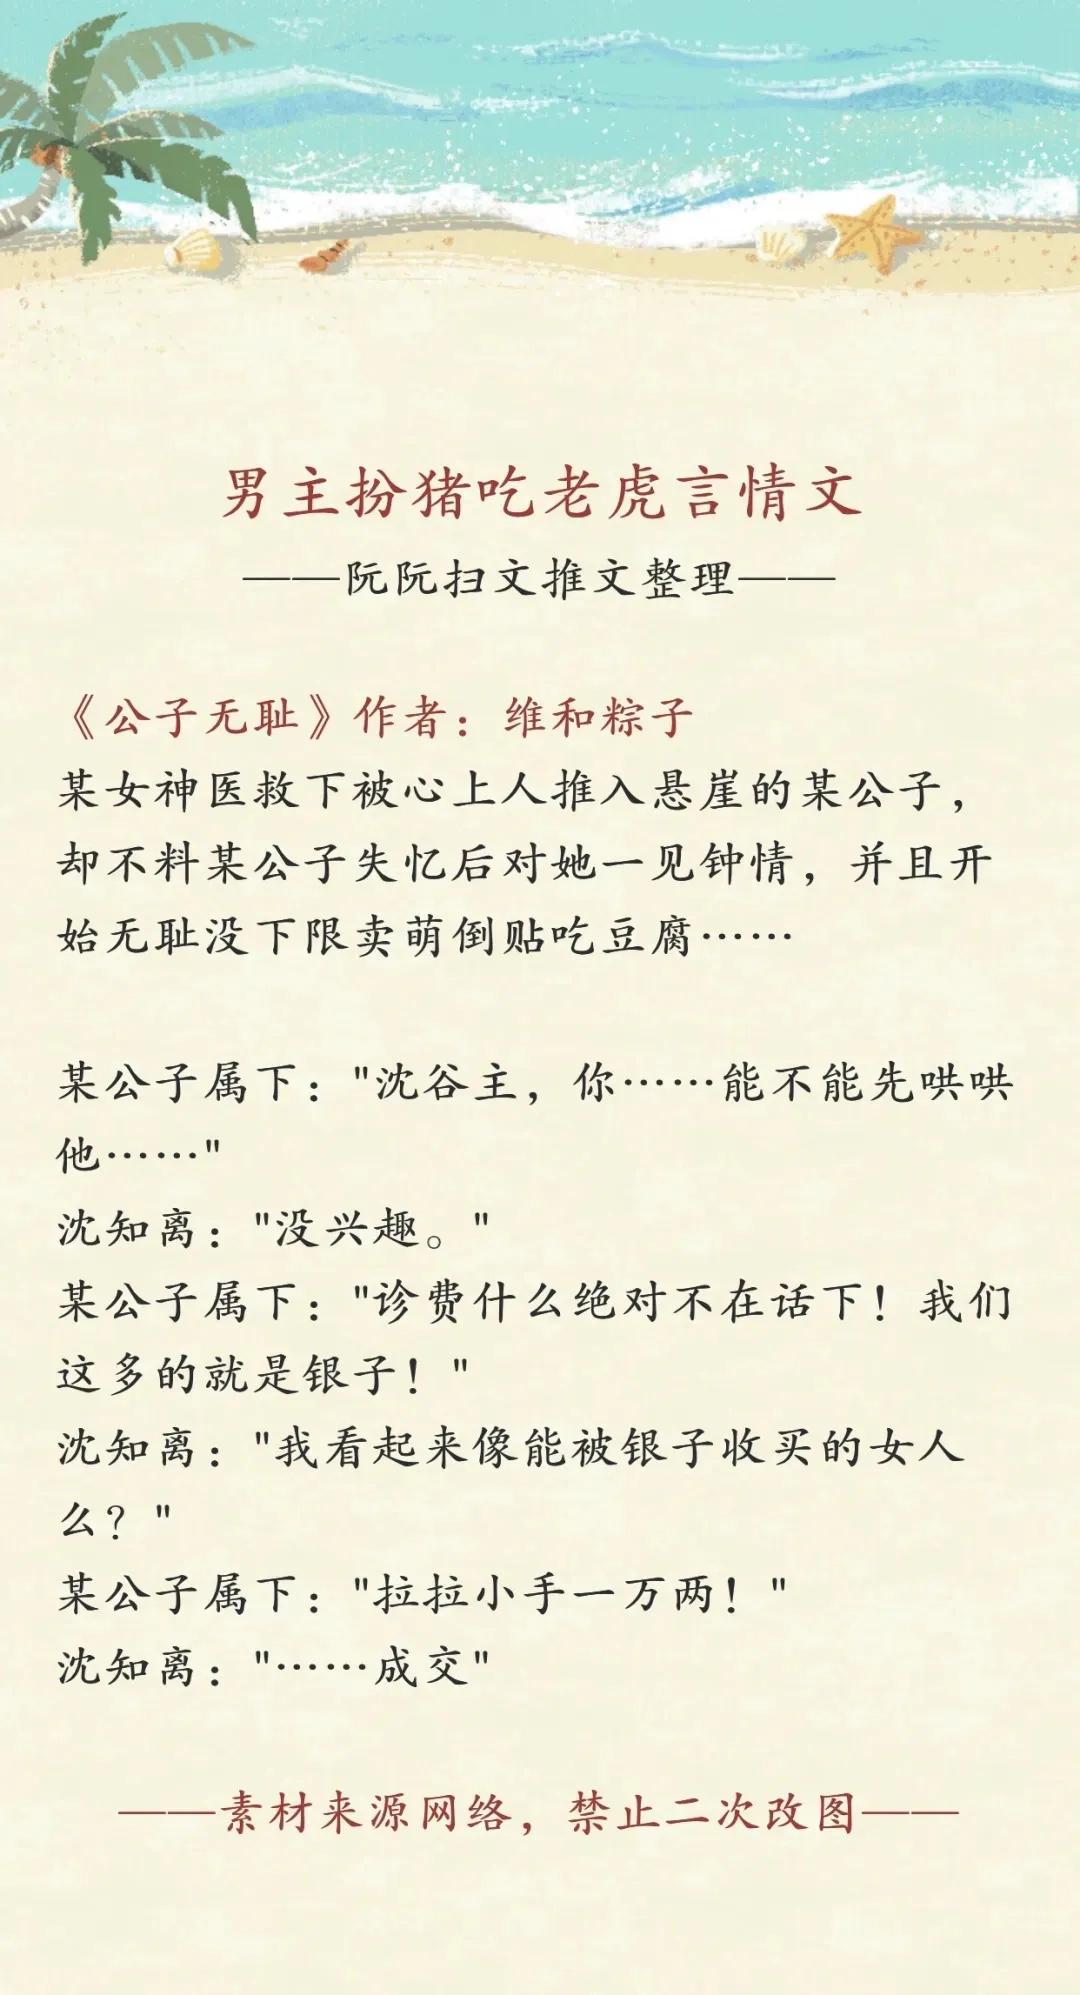 男主扮猪吃老虎言情文
——阮阮扫文推文整理——
《公子无耻》作者：维和粽子
某女神医救下被心上人推入悬崖的某公子，
却不料某公子失忆后对她一见钟情，并且开
始无耻没下限卖萌倒贴吃豆腐……
某公子属下："沈谷主，你……能不能先哄哄
他……"
沈知离："没兴趣。"
某公子属下："诊费什么绝对不在话下！我们
这多的就是银子！"
沈知离："我看起来像能被银子收买的女人
么？"
某公子属下："拉拉小手一万两！"
沈知离："……成交"
——素材来源网络，禁止二次改图——